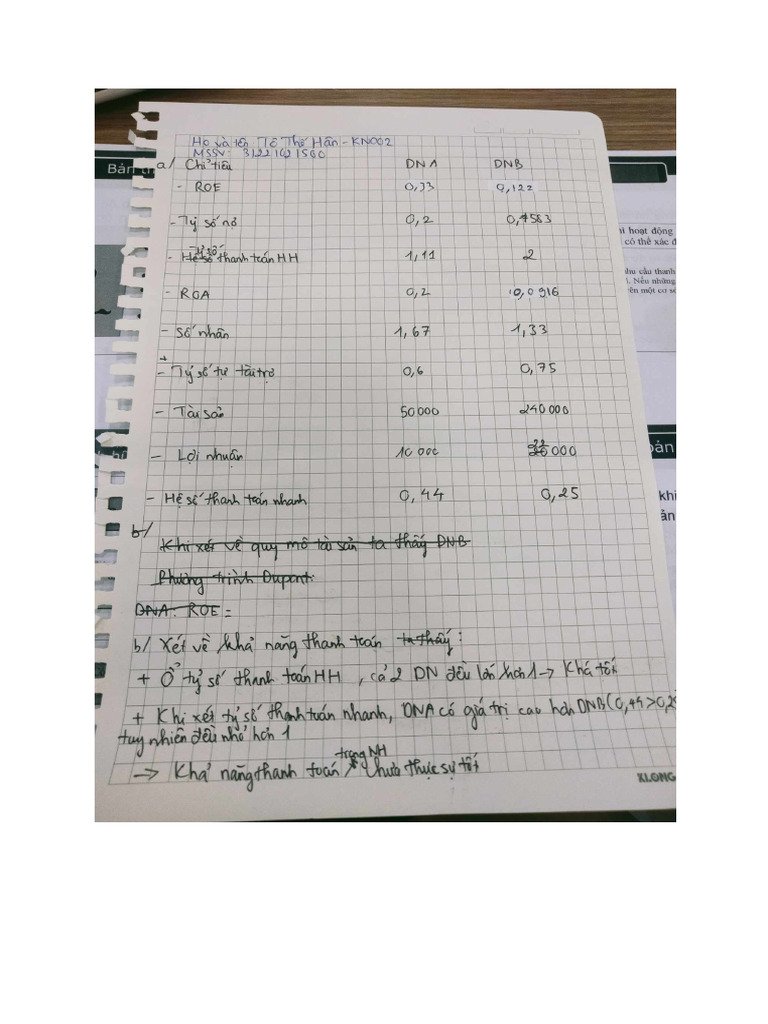 Họ và tên: Tô Thế Hân - KN002
MSSV: 31221621560
a/ Chỉ tiêu DNA DNB
- ROE 0,33 0,122
- Tỷ số nợ 0,2 0,1583
- Hệ số tỷ số thanh toán HH 1,11 2
- ROA 0,2 0,0916
- Số nhân 1,67 1,33
- Tỷ số tự tài trợ 0,6 0,75
- Tài sản 50000 240000
- Lợi nhuận 10 000 22000
- Hệ số thanh toán nhanh 0,44 0,25
b/
Khi xét về quy mô tài sản ta thấy DNB
Phương trình Dupont:
DNA: ROE =
b/ Xét về khả năng thanh toán ta thấy:
+ Ở tỷ số thanh toán HH, cả 2 DN đều lớn hơn 1 → Khá tốt
+ Khi xét tỷ số thanh toán nhanh, DNA có giá trị cao hơn DNB (0,44 > 0,2
tuy nhiên đều nhỏ hơn 1
→ Khả năng thanh toán trong NH chưa thực sự tốt
KLONG
Bản
hỉ hoạt động
có thể xác đ
hu cầu thanh
. Nếu những
ên một cơ sở
bản
khi
ản